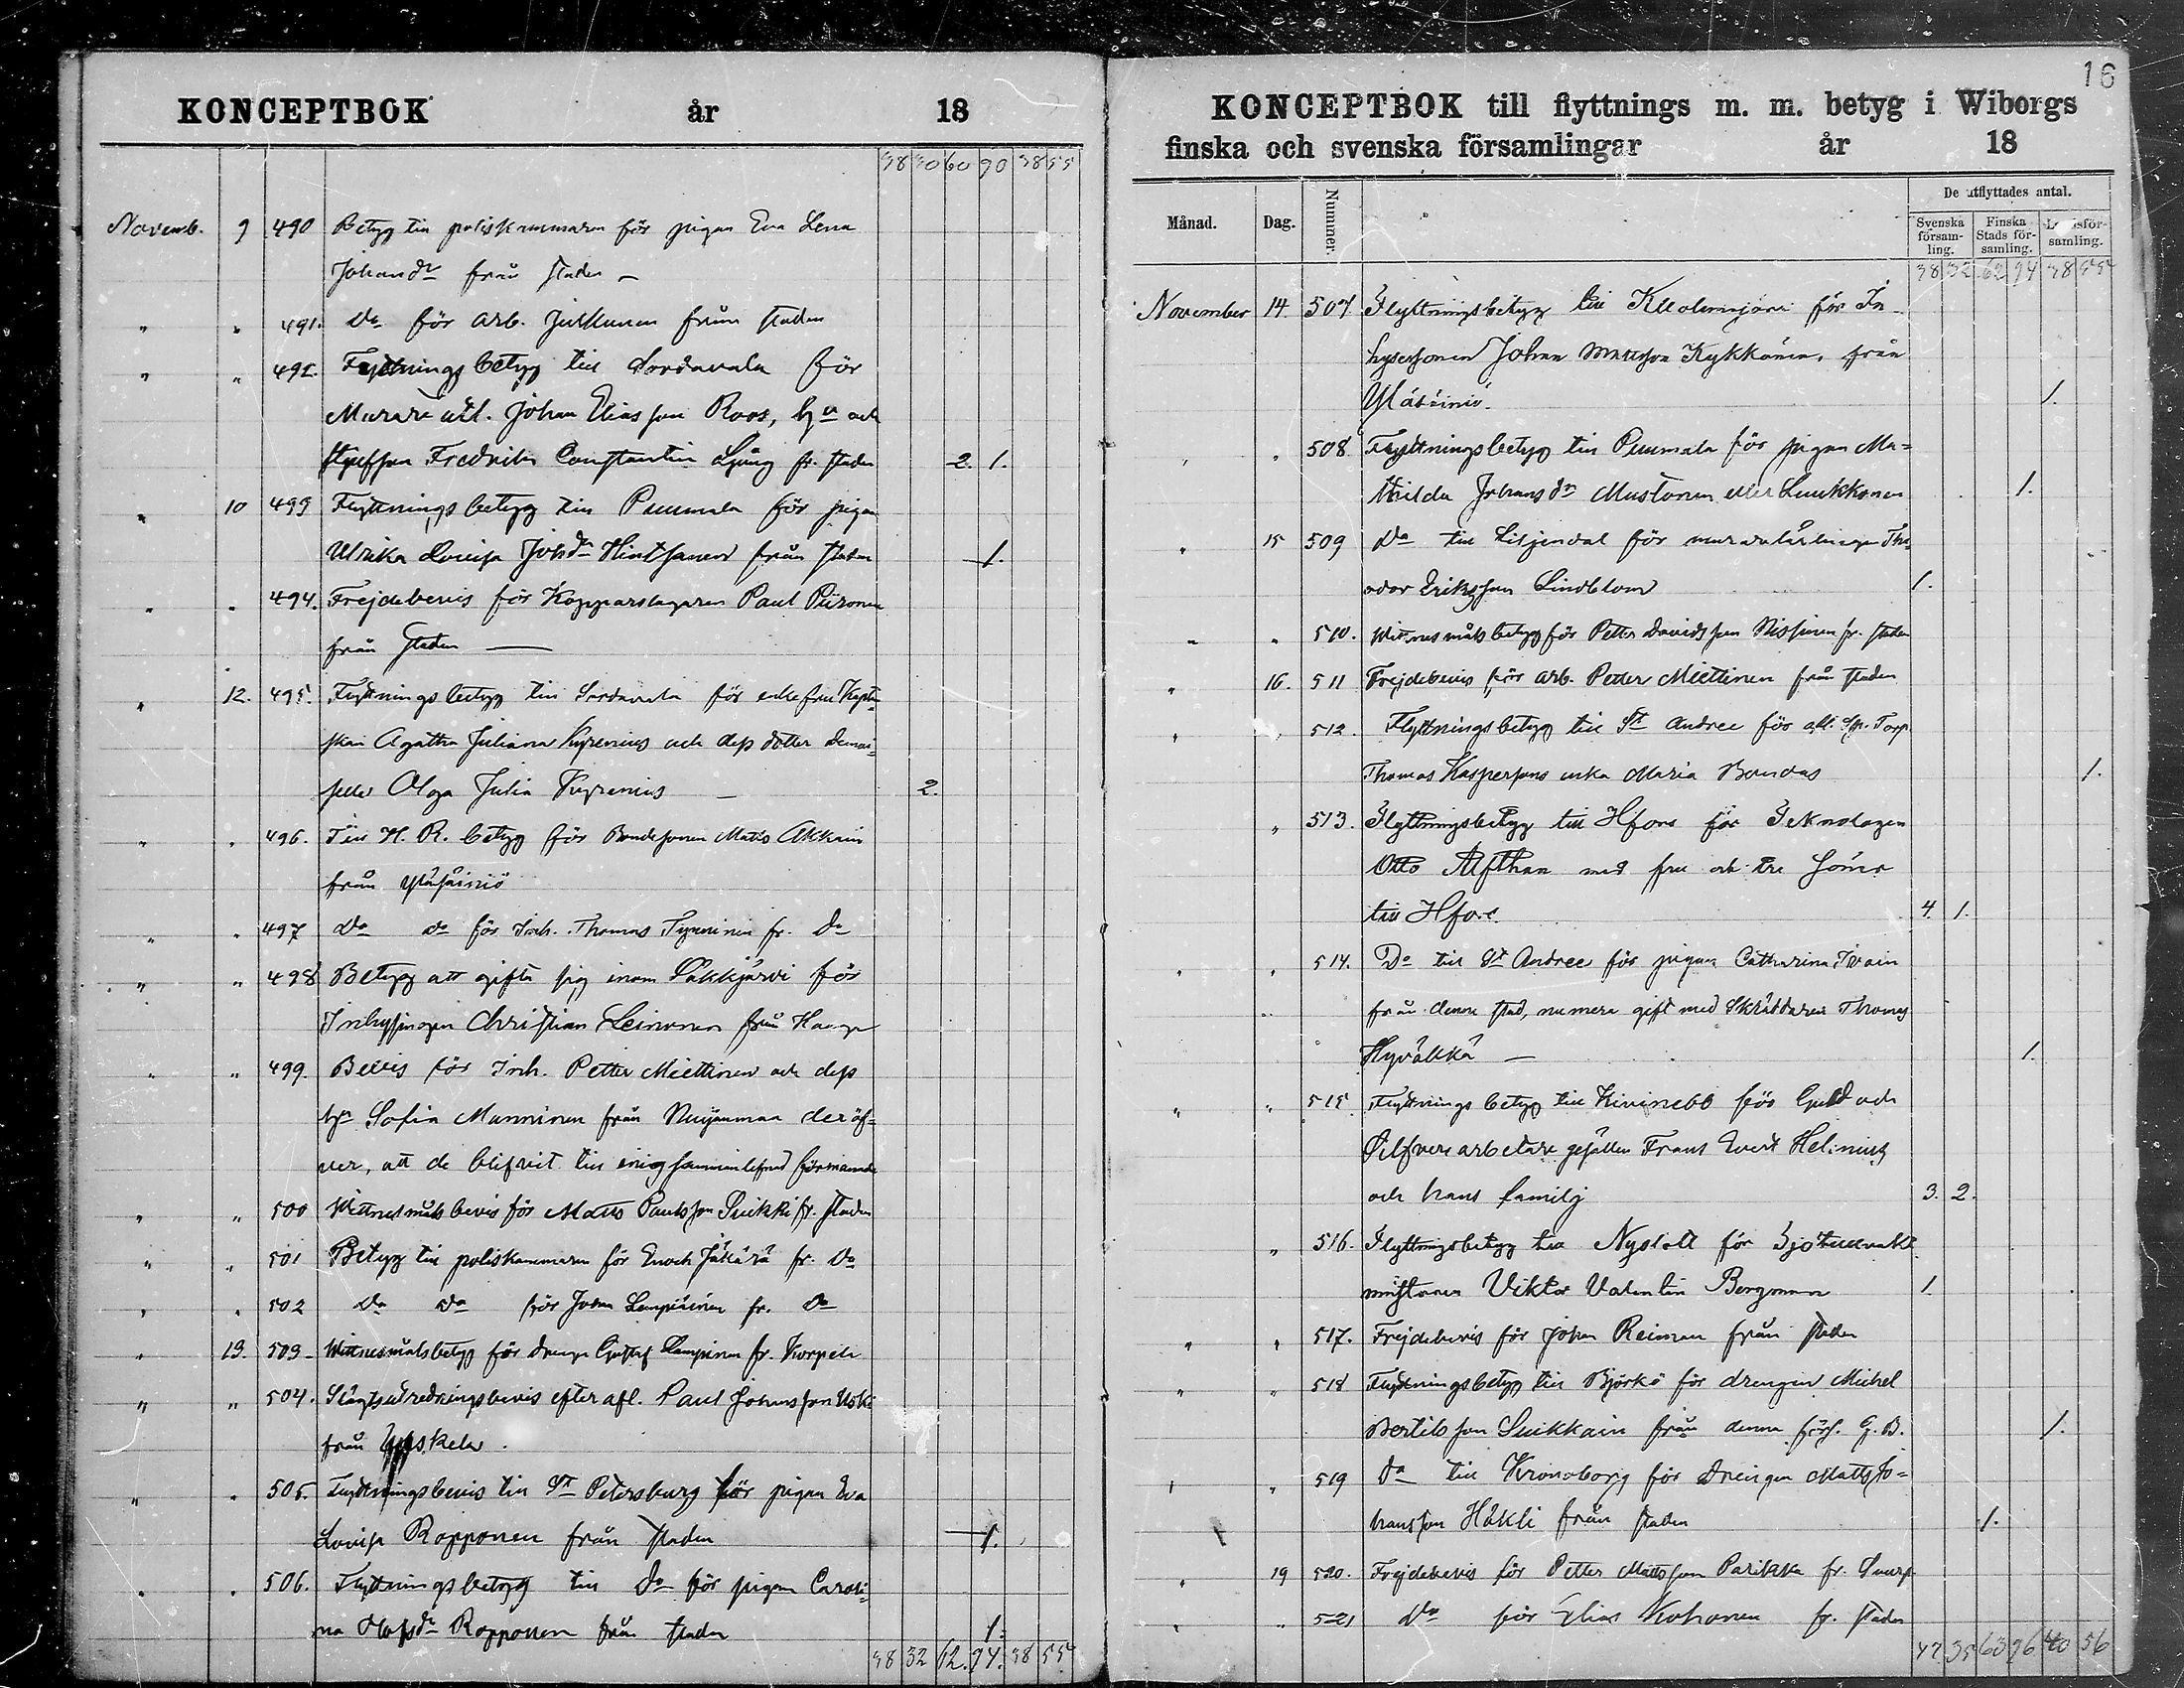 KONCEPTBOK år 18
38 30 60 90 38 55
Novemb. 9 490 Betyg till poliskammaren för pigan Eva Lena
Johansdr från staden —
" " 491. Do för arb. Jurkunen från staden
" " 492. Flyttningsbetyg till Sordavala för
Murare Johan Eliasson Roos, h. o och
styfson Fredrik Constantin Ljung fr. staden 2. 1.
" 10 493 Flyttningsbetyg till Puumala för pigan
Ulrika Lovisa Johdr Hintsanen från staden 1.
" " 494. Frejdebevis för Kopparslagaren Paul Piironen
från staden —
" 12. 495. Flyttningsbetyg till Sordavala för enkefru
Agatha Juliana Kyrenius och dess dotter demoi-
selle Olga Julia Kyrenius — 2.
" " 496. Till H. R. betyg för Bondesonen Matts Akkain
från Yläsäiniö
" " 497 Do do för Inh. Thomas Tynninen fr. Do
" " 498 Betyg att gifta sig inom Säkkjärvi för
Inhysingen Christian Leinonen från
" " 499. Bevis för Inh. Petter Miettinen och dess
h. Sofia Manninen från Nuijamaa deröf-
ver, att de blifvit till enig sammanlefnad förmanade
" " 500 Wittnesmåls bevis för Matts Paulsson Suikki fr. staden
" " 501 Betyg till poliskammaren för Enoch Jäkärä fr. Do
" " 502 Do Do för Johan Lempiäinen fr. Do
" 13. 503 Wittnesmålsbetyg för drengen Gustaf Lempinen fr. Korpela
" " 504. Slägtutredningsbevis efter afl. Paul Johansson Uski
från
" " 505. Flyttningsbevis till St Petersburg för pigan Eva
Lovisa Ropponen från staden 1.
" " 506. Flyttningsbetyg till Do för pigan Caroli-
na Ropponen från staden 1.
38 32 62. 94. 38 55
16
KONCEPTBOK till flyttnings m. m. betyg i Wiborgs
finska och svenska församlingar år 18
Månad. Dag. Nummer. De utflyttades antal.
Svenska församling. Finska Stads församling. församling.
38 32 62 94 38 55
November 14 507 Flyttningsbetyg till för In-
hysesonen Johan Mattsson Kykkänen, från
Yläsäiniö. 1.
" " 508 Flyttningsbetyg till Puumala för pigan Ma-
thilda Johansdr Mustonen eller Luukkonen 1.
" 15 509 Do till Liljendal för murarelärlingen The-
odor Eriksson Lindblom 1.
" " 510. Wittnesmåls betyg för Petter Davidsson Nissinen fr. staden
" 16. 511 Frejdebevis för arb. Petter Miettinen från staden
" " 512. Flyttningsbetyg till St Andree för afl. Torp
Thomas Kaspersons enka Maria Bondas 1.
" 513. Flyttningsbetyg till Hfors för Teknologen
Otto Alfthan med fru och tre söner
till Hfors. 4 1.
" " 514. Do till St Andree för pigan Catharina Iivain
från denna stad, numera gift med Skräddaren Thomas
Hyväkkä — 1.
" " 515 Flyttningsbetyg till Kivinebb för Guld och
Silfverarbetare gesällen Frans Evert Helenius
och hans familj 3. 2.
" 516. Flyttningsbetyg till Nyslott för Sjötullvakt-
mästaren Viktor Valentin Bergman 1
" " 517. Frejdebevis för Johan Reiman från staden
" " 518 Flyttningsbetyg till Björkö för drengen Michel
Bertilsson Suikkain från denna förs. G. B. 1.
" " 519 Do till Kronoborg för Drengen Matts Jo-
hansson Häkli från staden 1.
" 19 520. Frejdebevis för Petter Mattsson Parikka fr.
" " 521 Do för Elias Kohonen fr. staden
47 35 63 96 40 56